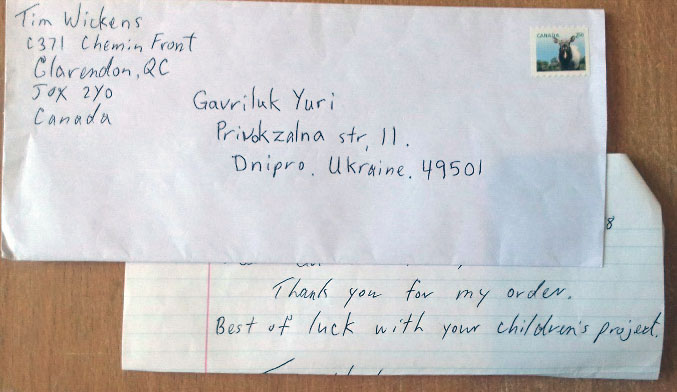 Tim Wickens
C371 Chemin Front
Clarendon, QC
J0X 2Y0
Canada
CANADA
Gavriluk Yuri
Privokzalna str, 11.
Dnipro. Ukraine. 49501
8
Thank you for my order.
Best of luck with your children's project.